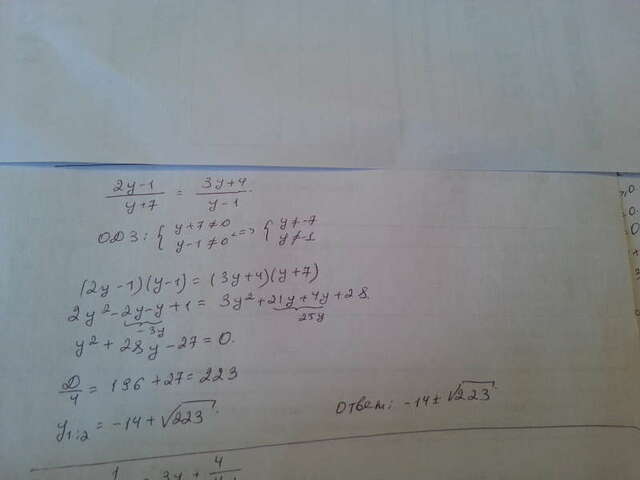 2y-1/y+7 = 3y+4/y-1.
ОДЗ: { y+7≠0 y-1≠0 <=> { y≠-7 y≠-1
(2y-1)(y-1)=(3y+4)(y+7)
2y²-2y-y+1 = 3y²+21y+4y+28.
-3y 25y
y²+28y-27=0.
D/4 = 196+27=223
y1;2 = -14+√223.
Ответ: -14±√223.
3y+ 4